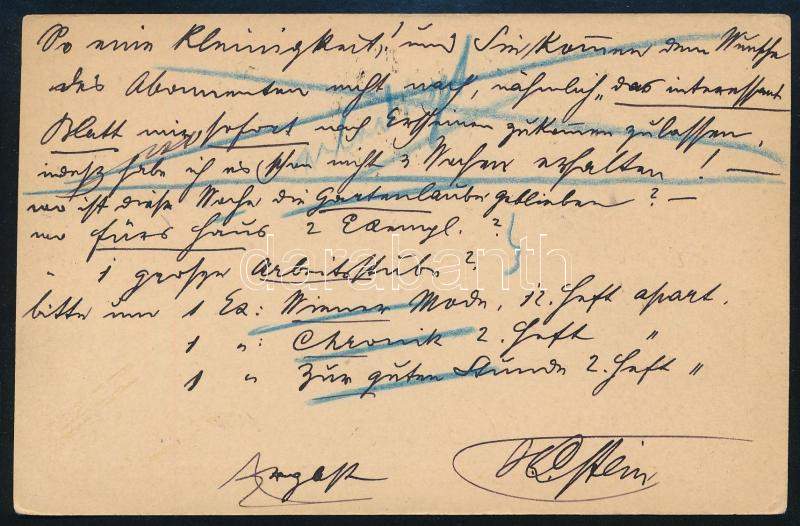 So eine Kleinigkeit! und Sie kommen dem Wunsche
des Abonnenten nicht nach, nähmlich „das interessant
Blatt mir sofort nach Erscheinen zukommen zu lassen,
indeß habe ich es schon nicht 3 Wochen erhalten! —
wo ist diese Woche die Gartenlaube geblieben? —
wo fürs Haus 2 Exempl.?
" 1 großer Arbeitsstube?
bitte um 1 Ex: Wiener Mode, 12. Heft apart.
1 ": Chronik 2. Heft "
1 " Zur guten Stunde 2. Heft "
darabanth